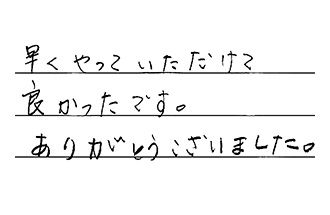 早くやっていただけて
良かったです。
ありがとうございました。